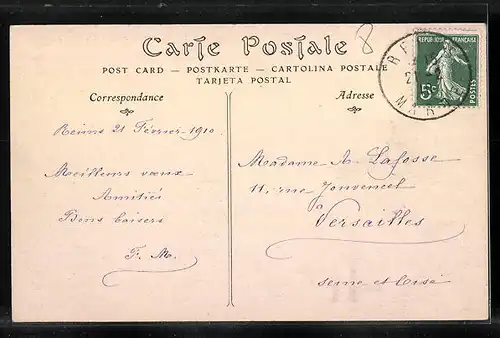 Carte Postale
8
POST CARD — POSTKARTE — CARTOLINA POSTALE
TARJETA POSTAL
Correspondance
Adresse
REPUBLIQUE FRANÇAISE
5c
POSTES
Reims 21 Février 1910
Meilleurs vœux
Amitiés
Bons baisers
F. M.
Madame A. Lafosse
11, rue Jouvencel
Versailles
Seine et Oise